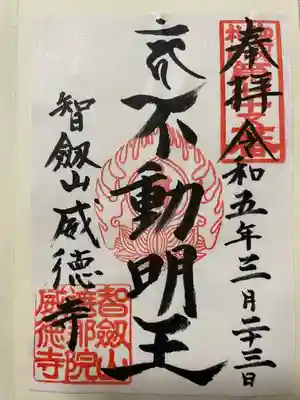 奉拝
令和五年三月二十三日
不動明王
智劔山威徳寺
智劔山
威徳寺